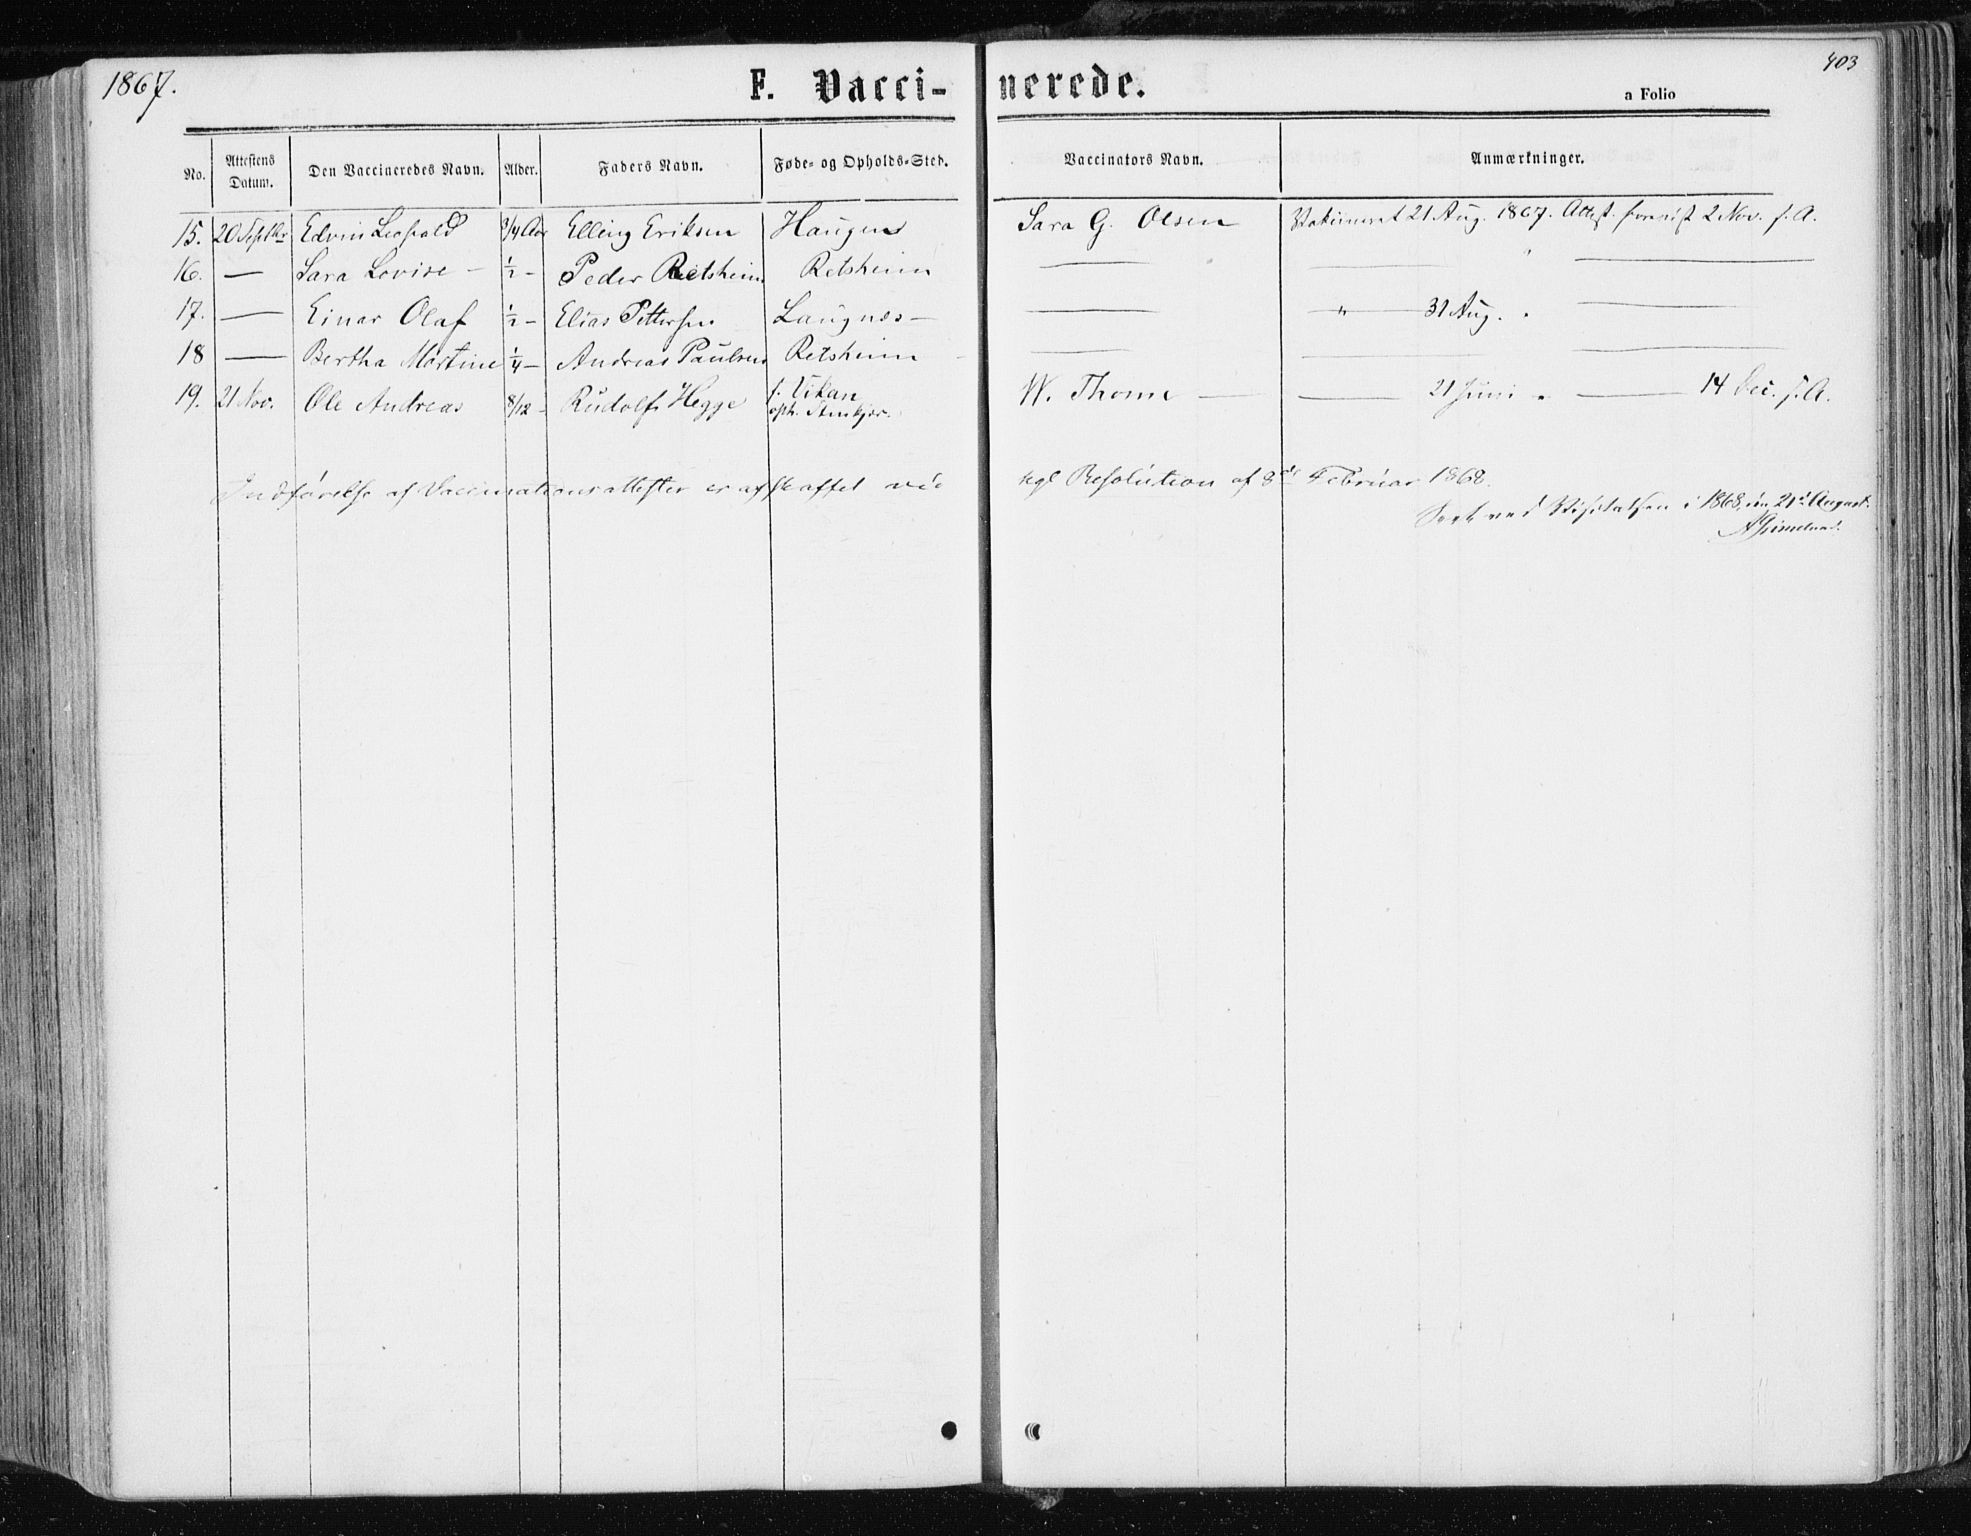 1867.
F. Vacci-
nerede.
403
a Folio
No. | Attestens Datum. | Den Vaccineredes Navn. | Alder. | Faders Navn. | Føde- og Opholds-Sted. | Vaccinators Navn. | Anmærkninger.
15. 20 Septbr Edvin Leopold 3/4 Aar Elling Eriksen Haugen Sara G. Olsen Vakcineret 21 Aug. 1867. Attest forevist 2 Nov. s. A.
16. — Sara Lovise — 1/2 — Peder Retsheim Retsheim — — " —
17. — Einar Olaf 1/2 — Elias Pettersen Laugnes — — — " — 31 Aug. " —
18 — Bertha Martine 1/4 — Andreas Paulsen Retsheim — — — —
19. 21 Nov. Ole Andreas 8/12 — Rudolf Hegge f. Vikan W. Thome — — 21 Juni " — 14 Dec. s. A.
oph. Stenkjær.
Indførelse af Vaccinationsattester er afskaffet ved kgl Resolution af 8de Februar 1868.
Seet ved Visitatsen i 1868, den 21de August.